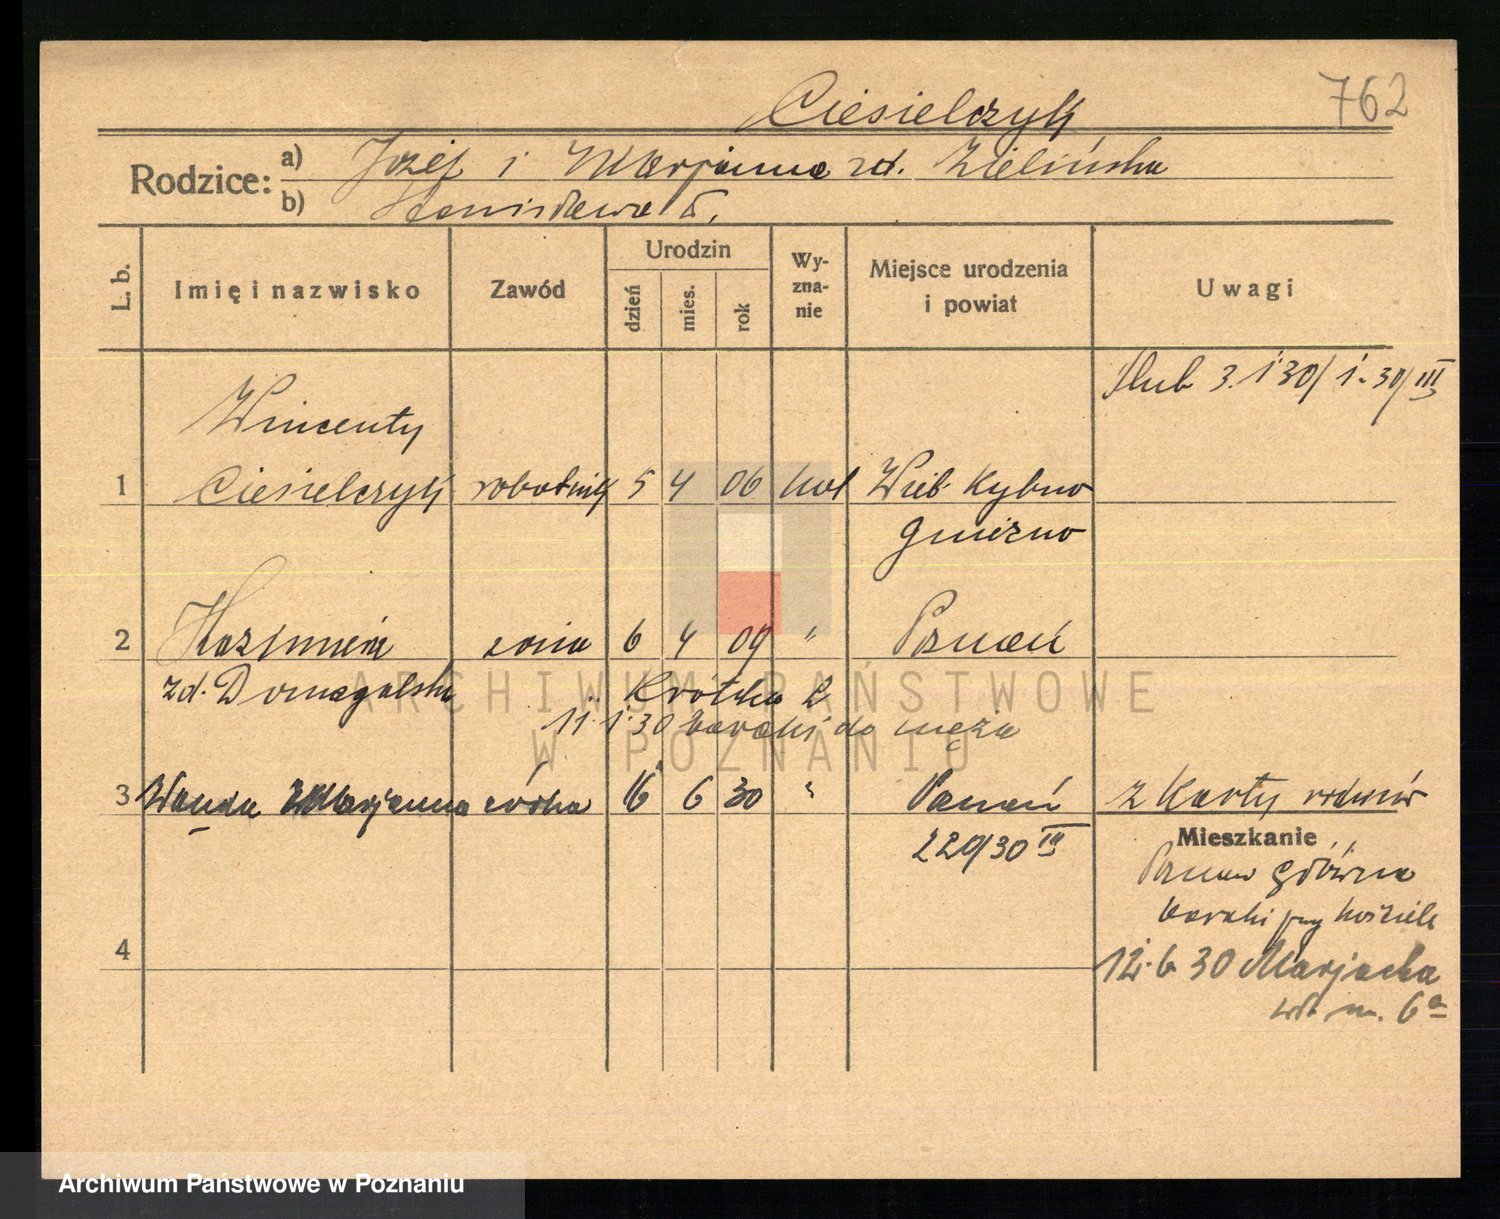 Ciesielczyk
762
Rodzice:
a) Józef i Marjanna zd. Zielińska
b) Stanisława
L. b.
Imię i nazwisko
Zawód
Urodzin
dzień
mies.
rok
Wy-
zna-
nie
Miejsce urodzenia
i powiat
Uwagi
ślub 3.1 30/1.30/III
Wincenty
1 Ciesielczyk robotnik 5 4 06 kat Wielk. Rybno
Gniezno
2 Kazimiera żona 6 4 09 " Poznań
zd. Domagalska Krótka 2
11.1.30 baraki do męża
3 Wanda Marjanna córka 16 6 30 " Poznań z karty rodziców
220/30 III
Mieszkanie
Poznań główna
baraki przy kościele
4
12.6 30 Marjacka
m. 6a
ARCHIWUM PAŃSTWOWE
W POZNANIU
Archiwum Państwowe w Poznaniu